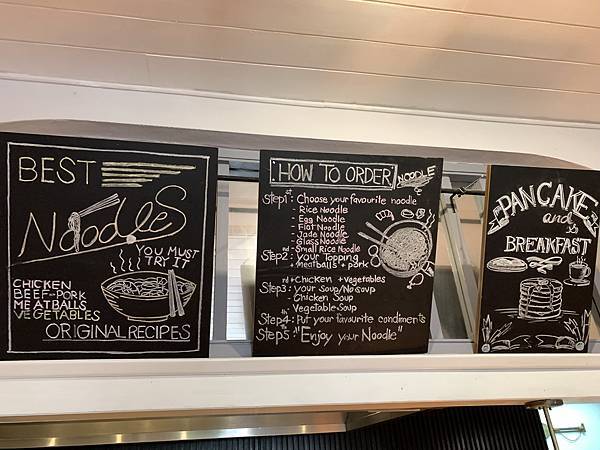 BEST
Noodles
YOU MUST
TRY IT
CHICKEN
BEEF-PORK
MEATBALLS
VEGETABLES
ORIGINAL RECIPES
HOW TO ORDER
NOODLE
Step1st: Choose your favourite noodle
- Rice Noodle
- Egg Noodle
- Flat Noodle
- Jade Noodle
- Glass Noodle
- Small Rice Noodle
Step2nd: your Topping
+ Meatballs + pork
+ Chicken + vegetables
Step3rd: your Soup/No Soup
- Chicken Soup
- Vegetable Soup
Step4th: Put your favourite condiments
Step5th: "Enjoy your Noodle"
PANCAKE
and
BREAKFAST